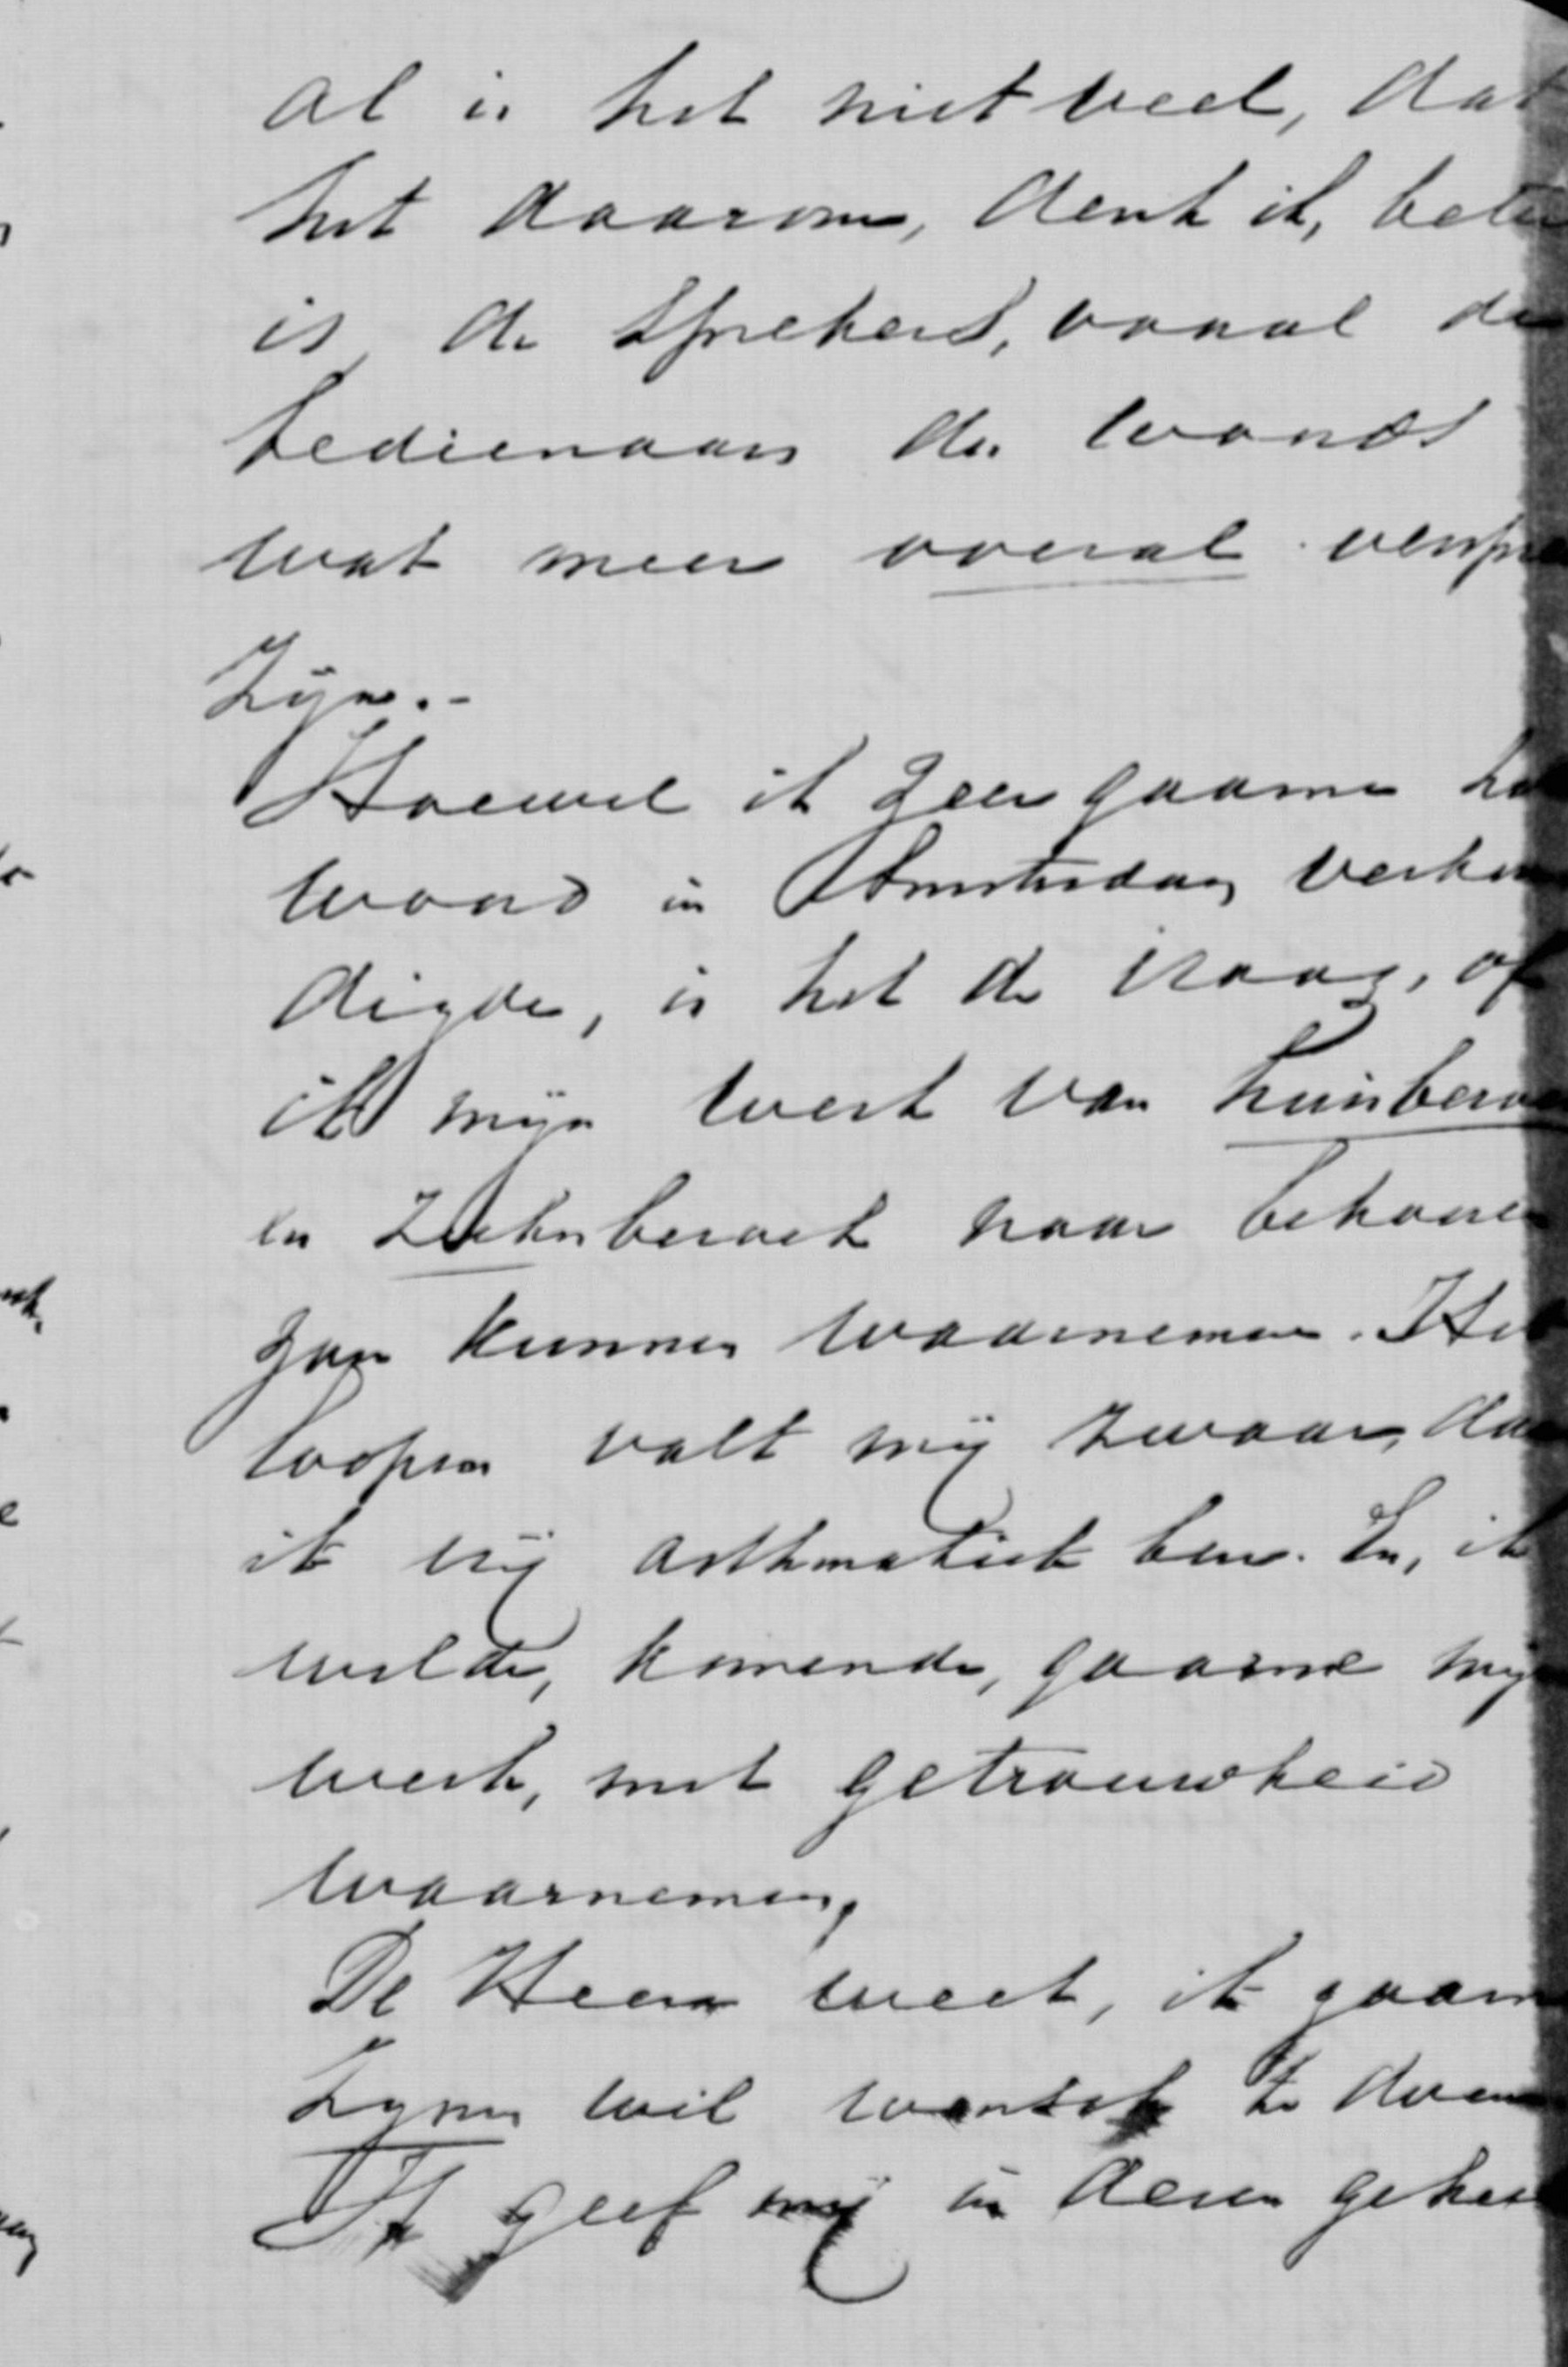 al is het niet veel, dat
het daarom, denk ik, beter
is, de sprekers, vooral de
bedienaars des woords
wat meer overal verspr
zijn.-
Hoewel ik zeer gaarne he
woord in Amsterdam verkon
digde, is het de vraag, of
ik mijn werk van huisbezoe
en ziekenbezoek naar behoore
zou kunnen waarnemen. He
loopen valt mij zwaar, da
ik vrij asthmatiek ben. En, ik
wilde, komende, gaarne mij
werk, met getrouwheid
waarnemen,
De Heere weet, ik gaarn
Zijnen wil wensch te doen
Ik geef mij in dezen gehee